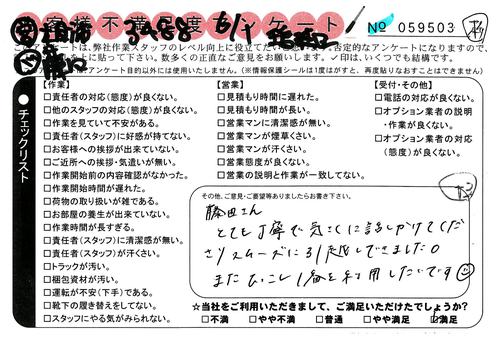 お客様不満足度アンケート
No 059503
このアンケートは、弊社作業スタッフのレベル向上に役立てたい
否定的なアンケートになりますので、
上に貼って下さい。数多くの正直なご意見をお願いします。✓印は、いくつでも結構です。
アンケート目的以外には使用いたしません。(※情報保護シールは1度はがすと、再度貼りなおすことはできません)
チェックリスト
【作業】
□責任者の対応(態度)が良くない。
□他のスタッフの対応(態度)が良くない。
□作業を見ていて不安がある。
□責任者(スタッフ)に好感が持てない。
□お客様への挨拶が出来ていない。
□ご近所への挨拶・気遣いが無い。
□作業開始前の内容確認がなかった。
□作業開始時間が遅れた。
□荷物の取り扱いが雑である。
□お部屋の養生が出来ていない。
□作業時間が長すぎる。
□責任者(スタッフ)に清潔感が無い。
□責任者(スタッフ)が汗くさい。
□トラックが汚い。
□梱包資材が汚い。
□運転が不安(下手)である。
□靴下の履き替えをしてない。
□スタッフにやる気がみられない。
【営業】
□見積もり時間に遅れた。
□見積もり時間が長い。
□営業マンに清潔感が無い。
□営業マンが煙草くさい。
□営業マンが汗くさい。
□営業態度が良くない。
□営業の説明と作業が一致してない。
【受付・その他】
□電話の対応が良くない。
□オプション業者の説明
・作業が良くない。
□オプション業者の対応
(態度)が良くない。
その他、ご意見・ご要望等ありましたらお書き下さい。
藤田さん
とても丁寧で気さくに話しかけてくだ
さりスムーズに引越しできました。
またひっこし1番を利用したいです
☆当社をご利用いただきまして、ご満足いただけたでしょうか?
□不満 □やや不満 □普通 □やや満足 ☑満足